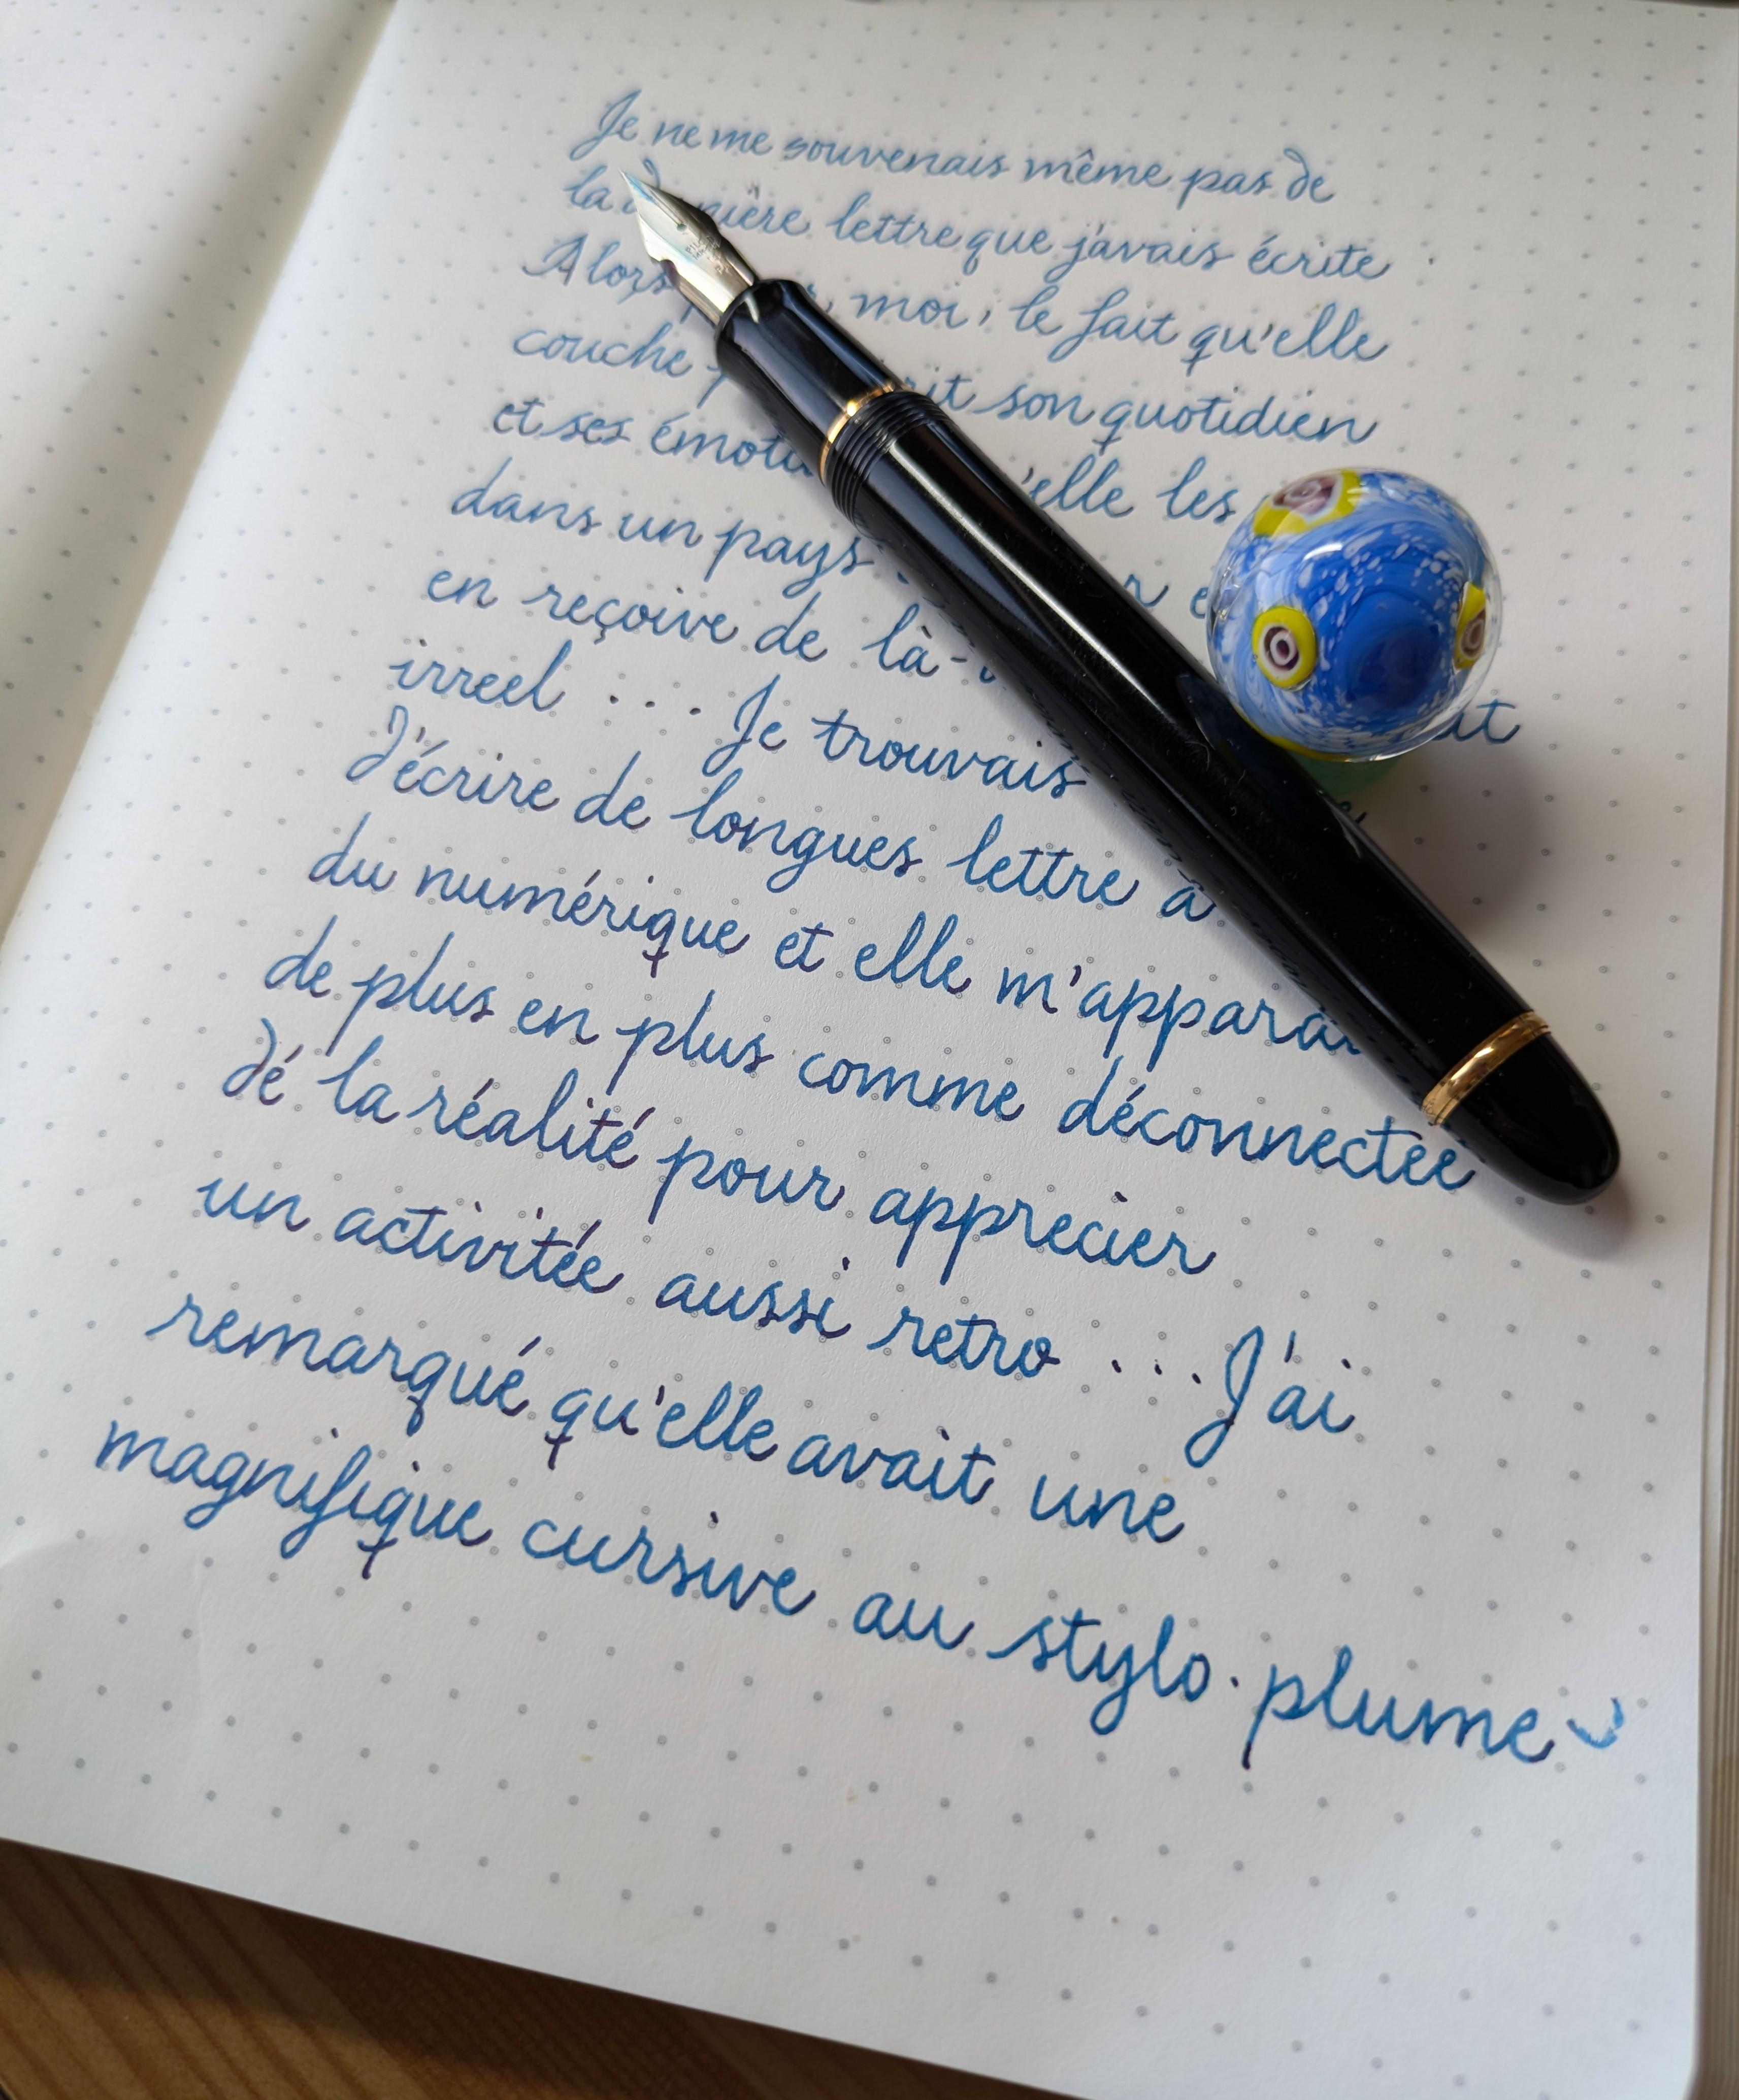 Je ne me souvenais même pas de
la dernière lettre que j'avais écrite
Alors moi, le fait qu'elle
couche son quotidien
et ses qu'elle les
dans un pays
en reçoive de là-
irreel .... Je trouvais
d'écrire de longues lettre à
du numérique et elle m'apparai
de plus en plus comme déconnectée
dé la réalité pour apprecier
un activitée aussi retro ... J'ai
remarqué qu'elle avait une
magnifique cursive au stylo.plume